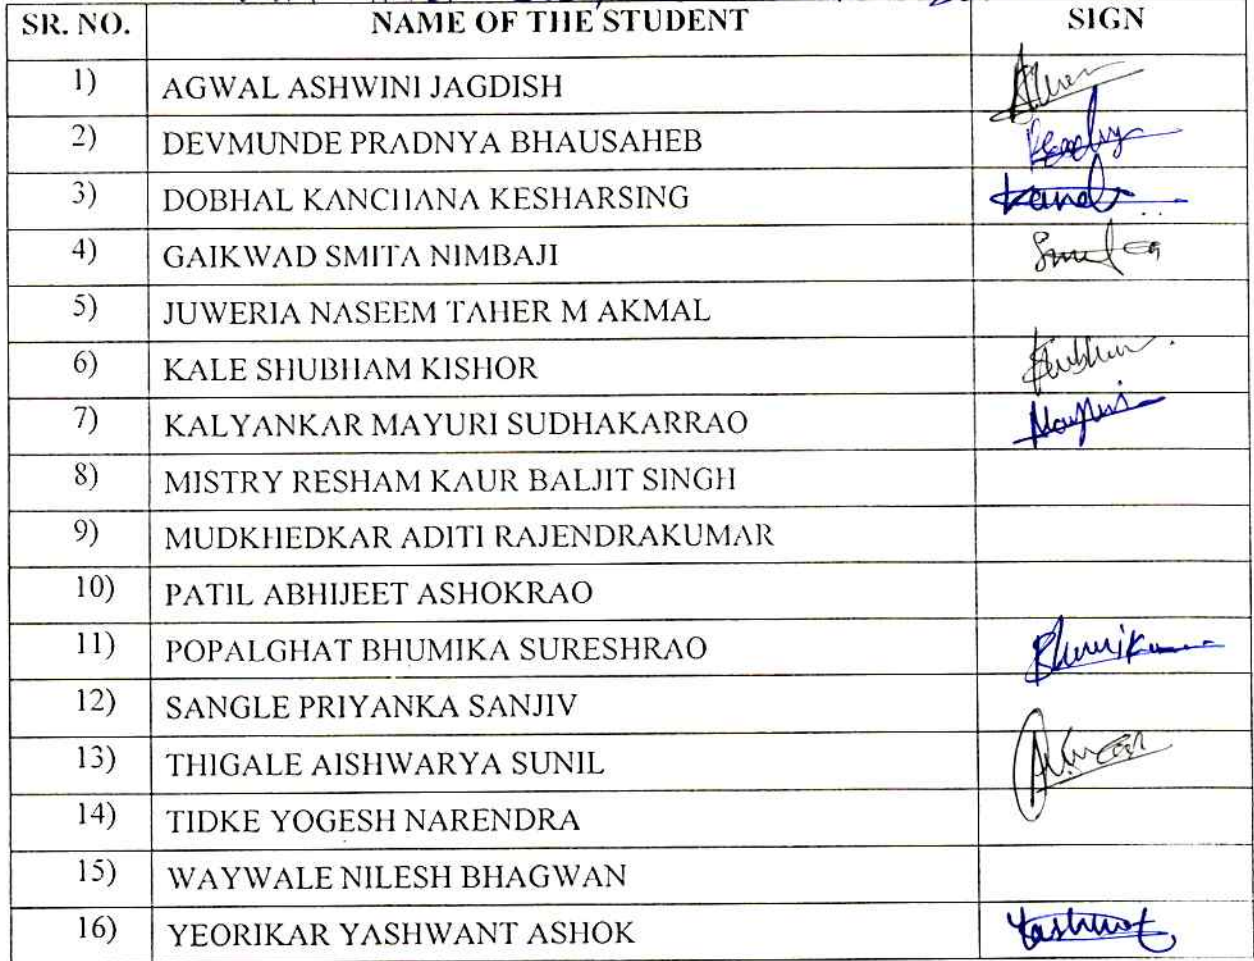 SR. NO. NAME OF THE STUDENT SIGN
1) AGWAL ASHWINI JAGDISH
2) DEVMUNDE PRADNYA BHAUSAHEB
3) DOBHAL KANCHANA KESHARSING
4) GAIKWAD SMITA NIMBAJI
5) JUWERIA NASEEM TAHER M AKMAL
6) KALE SHUBHAM KISHOR
7) KALYANKAR MAYURI SUDHAKARRAO Mayuri
8) MISTRY RESHAM KAUR BALJIT SINGH
9) MUDKHEDKAR ADITI RAJENDRAKUMAR
10) PATIL ABHIJEET ASHOKRAO
11) POPALGHAT BHUMIKA SURESHRAO Bhumika
12) SANGLE PRIYANKA SANJIV
13) THIGALE AISHWARYA SUNIL
14) TIDKE YOGESH NARENDRA
15) WAYWALE NILESH BHAGWAN
16) YEORIKAR YASHWANT ASHOK